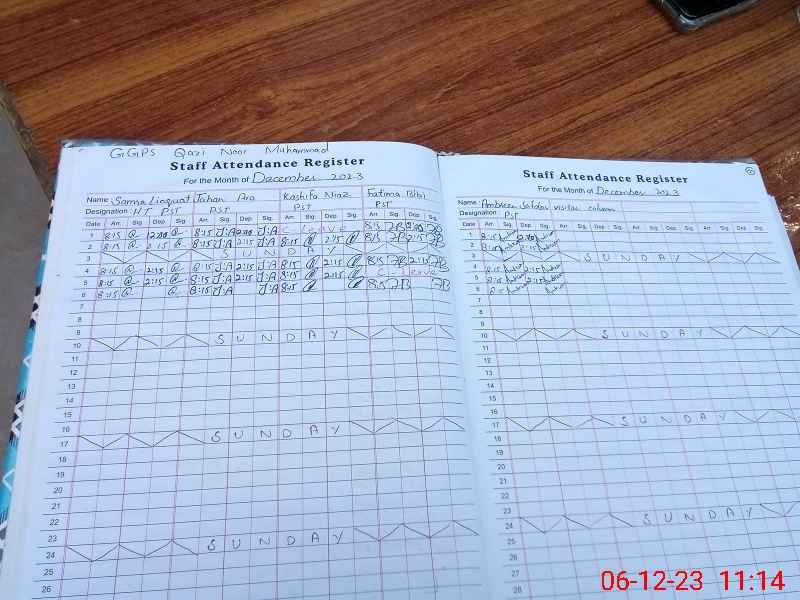 GGPS Qazi Noor Muhammad
Staff Attendance Register
For the Month of December 2023
Name Samna Liaquat Jahan Ara Kashifa Niaz Fatima Bibi
Designation HT PST PST PST PST
Date Arr. Sig. Dep. Sig. Arr. Sig. Dep. Sig. Arr. Sig. Dep. Sig. Arr. Sig. Dep. Sig.
1 8:15 8:15 J:A J:A C-leave 8:15 FB FB
2 8:15 2:15 8:15 J:A 2:15 J:A 8:15 2:15 8:15 FB 2:15 FB
3 SUNDAY
4 8:15 2:15 8:15 J:A 2:15 J:A 8:15 2:15 8:15 FB 2:15 FB
5 8:15 2:15 8:15 J:A 2:15 J:A 8:15 2:15 C-leave
6 8:15 8:15 J:A J:A 8:15 8:15 FB FB
7
8
9
10 SUNDAY
11
12
13
14
15
16
17 SUNDAY
18
19
20
21
22
23
24 SUNDAY
25
26
Staff Attendance Register
For the Month of December 2023
Name: Ambreen visitor column
Designation PST
Date Arr. Sig. Dep. Sig. Arr. Sig. Dep. Sig. Arr. Sig. Dep. Sig. Arr. Sig. Dep. Sig.
1 8:15
2 8:15 2:15
3 SUNDAY
4 8:15 2:15
5 8:15 2:15
6 8:15
7
8
9
10 SUNDAY
11
12
13
14
15
16
17 SUNDAY
18
19
20
21
22
23
24 SUNDAY
25
26
27
28
06-12-23 11:14